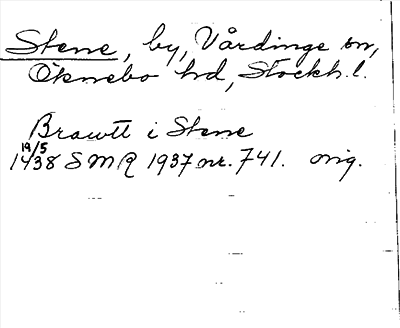 Stene, by, Vårdinge sn,
Öknebo hd, Stockh. l.
Brawtt i Stene
19/5
1438 SMR 1937 nr. 741. orig.